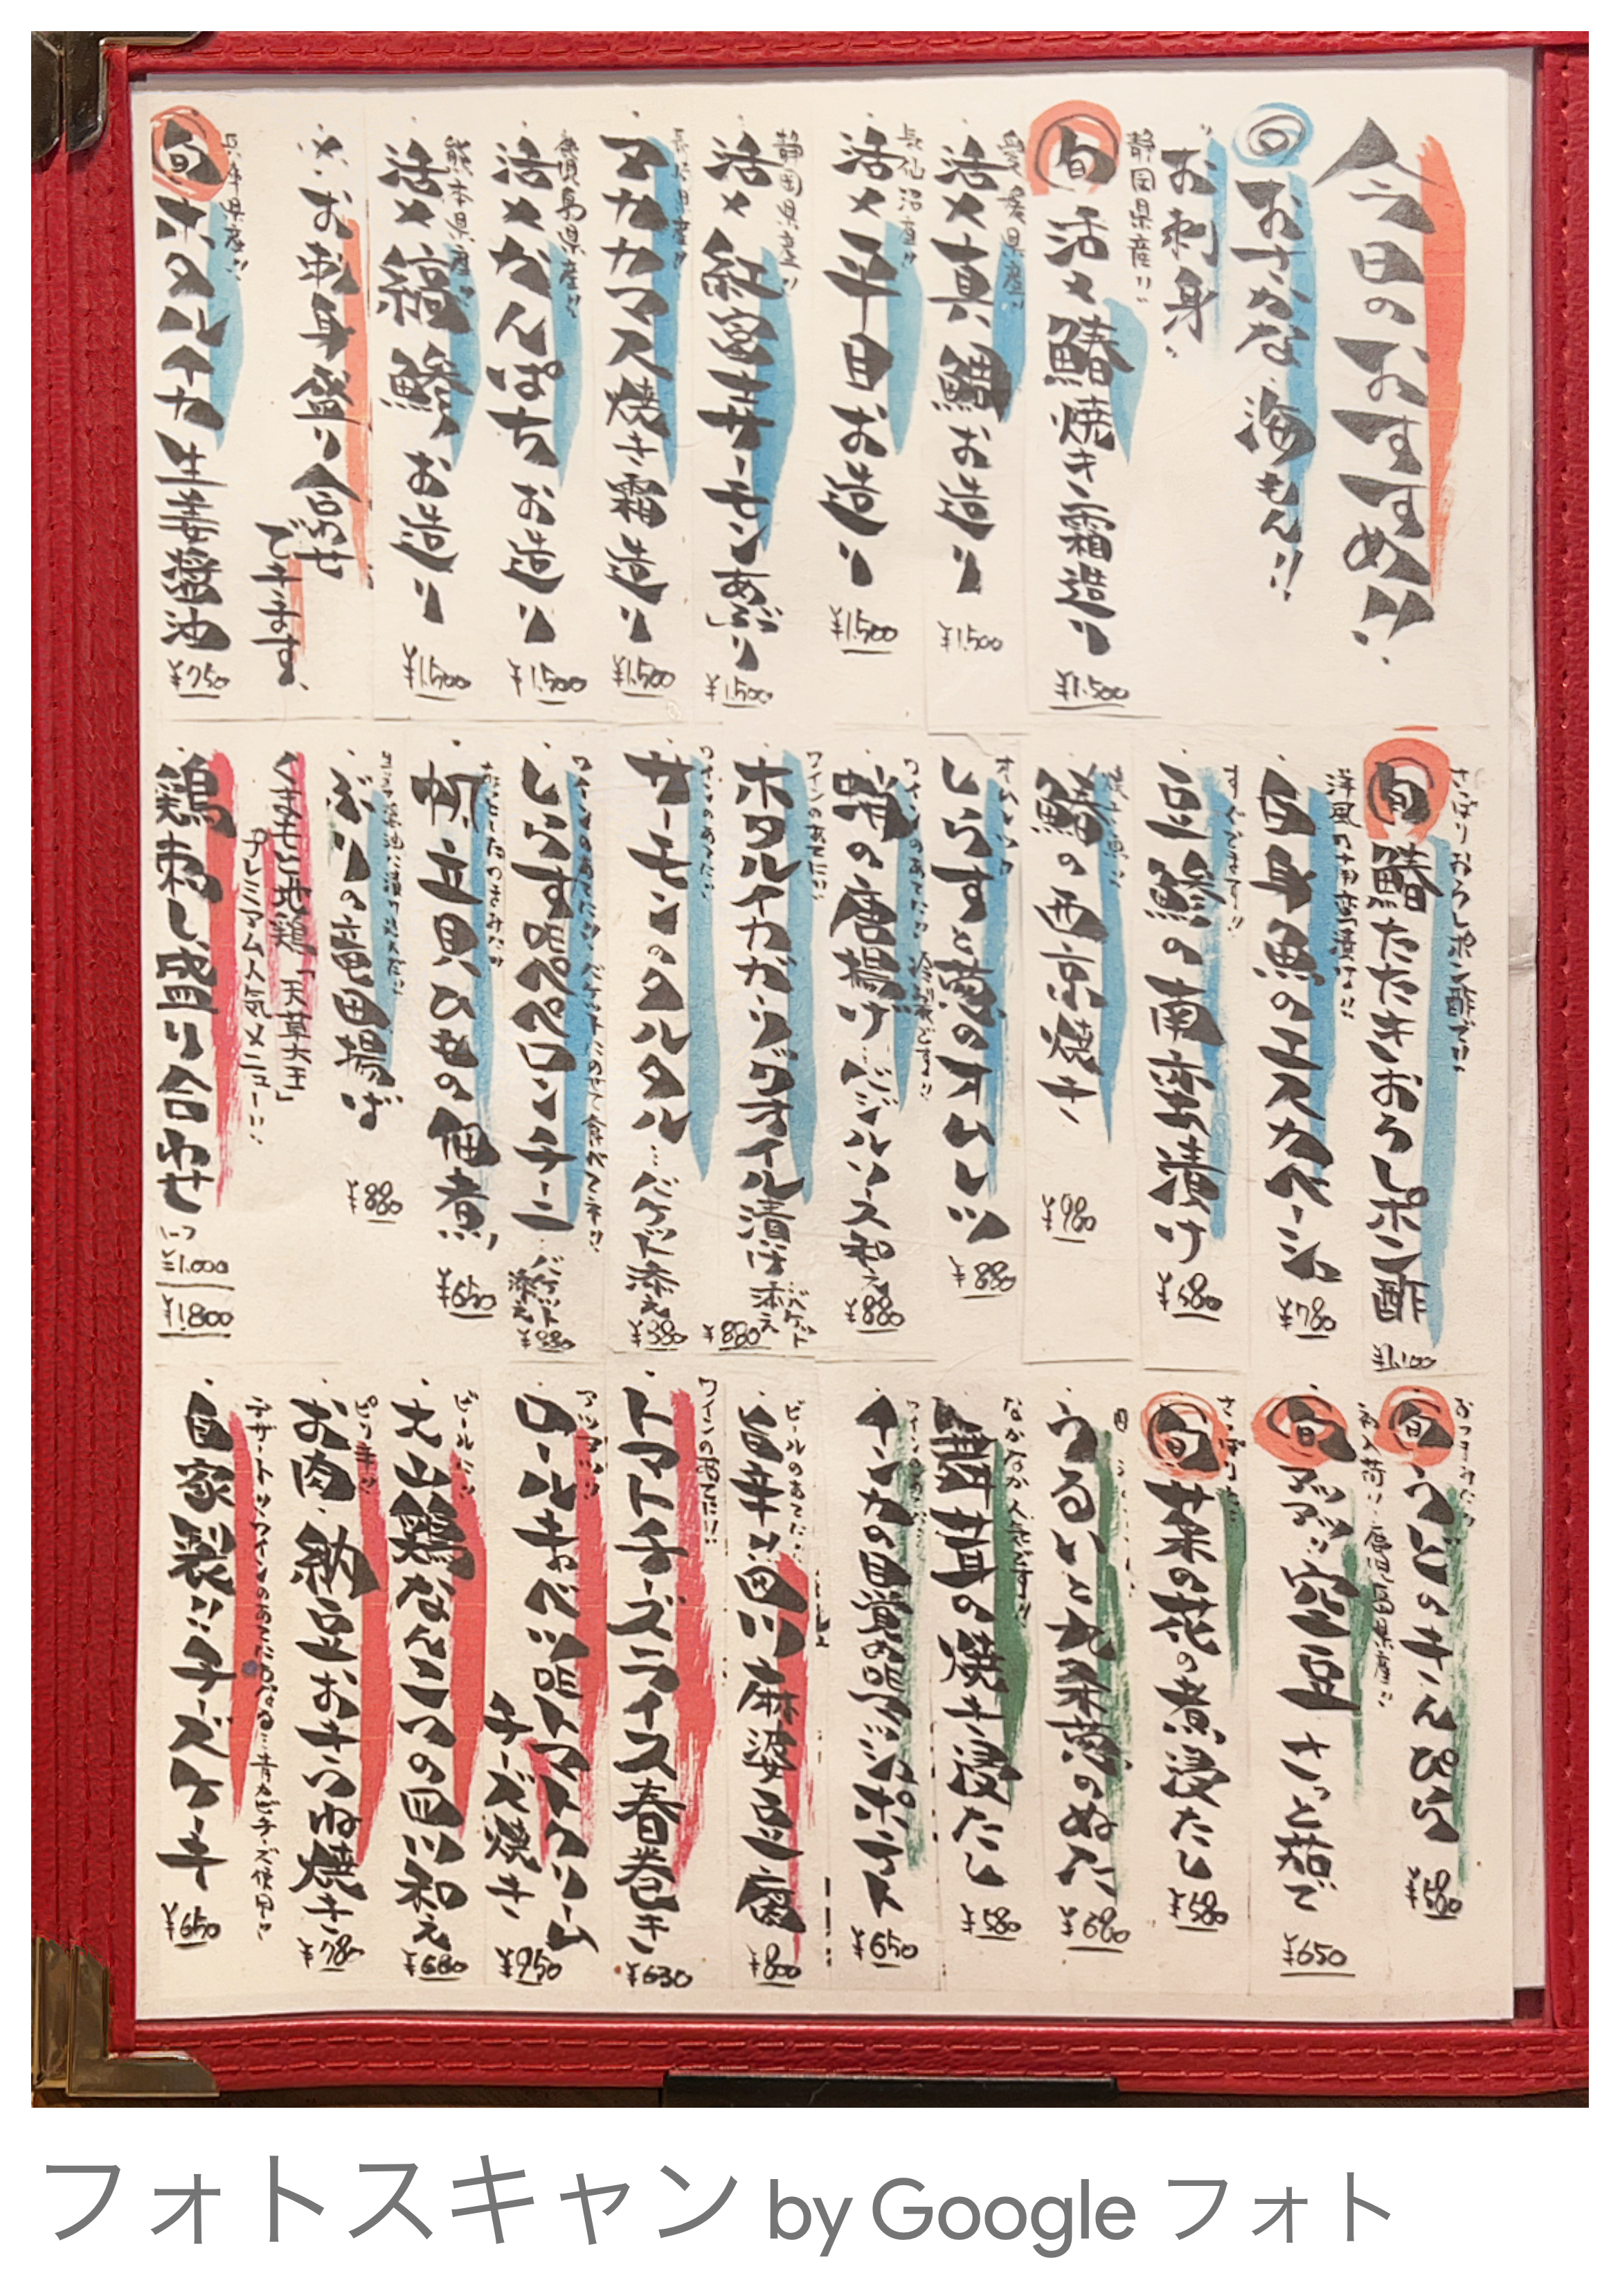 今日のおすすめ!!
おさかな 海もん!!
お刺身
静岡県産!!
旬 活〆鰆焼き霜造り ¥1,500
愛媛県産!!
活〆真鯛お造り ¥1,500
活〆平目お造り ¥1,500
静岡県産!!
活〆紅富士サーモンあぶり ¥1,500
長崎県産!!
マカカマス焼き霜造り ¥1,500
鹿児島県産!!
活〆かんぱちお造り ¥1,500
熊本県産!!
活〆縞鯵お造り ¥1,500
※お刺身盛り合わせ
できます。
兵庫県産!!
旬 ホタルイカ生姜醤油 ¥750
さっぱりおろしポン酢で!!
旬 鰆たたきおろしポン酢 ¥1,100
洋風の南蛮漬け!!
白身魚のエスカベーシュ ¥780
すぐでます!!
豆鯵の南蛮漬け ¥580
焼き魚!!
鰆の西京焼き ¥980
オムレツ
しらすと葱のオムレツ ¥880
ワインのあてに!!
蛸の唐揚げ バジルソース和え ¥880
ワインのあてに!!
ホタルイカガーリックオイル漬け バケット添え ¥880
ワインのあてに!!
サーモンのタルタル…バケット添え ¥880
ワインのあてに!! バケットにのせて食べてネ!!
しらすペペロンチーニ バケット添え ¥880
帆立貝ひもの佃煮 ¥650
生姜醤油に漬け込んだ!!
ぶりの竜田揚げ ¥880
くまもと地鶏「天草大王」
プレミアム人気メニュー!!
鶏刺し盛り合わせ
ハーフ ¥1,000
¥1,800
おつまみに!!
旬 うどのきんぴら ¥580
初入荷!! 鹿児島県産!!
旬 アツアツ空豆 さっと茹で ¥650
さっぱり!!
旬 菜の花の煮浸たし ¥580
うるいと九条葱のぬた ¥680
なかなか人気です!!
舞茸の焼き浸たし ¥580
インカの目覚め アンショバポテト ¥650
ビールのあてに!!
旨辛!!四川麻婆豆腐 ¥800
ワインのあてに!!
トマトチーズライス春巻き ¥630
アツアツ!!
ロールキャベツ トマトクリーム
チーズ焼き ¥950
ビールに!!
大山鶏なんこつの四川和え ¥680
ピリ辛!!
お肉、納豆おきつね焼き ¥780
デザートッ、ワインのあてにかなる…青カビチーズ使用!!
自家製!!チーズケーキ ¥650
フォトスキャン by Google フォト